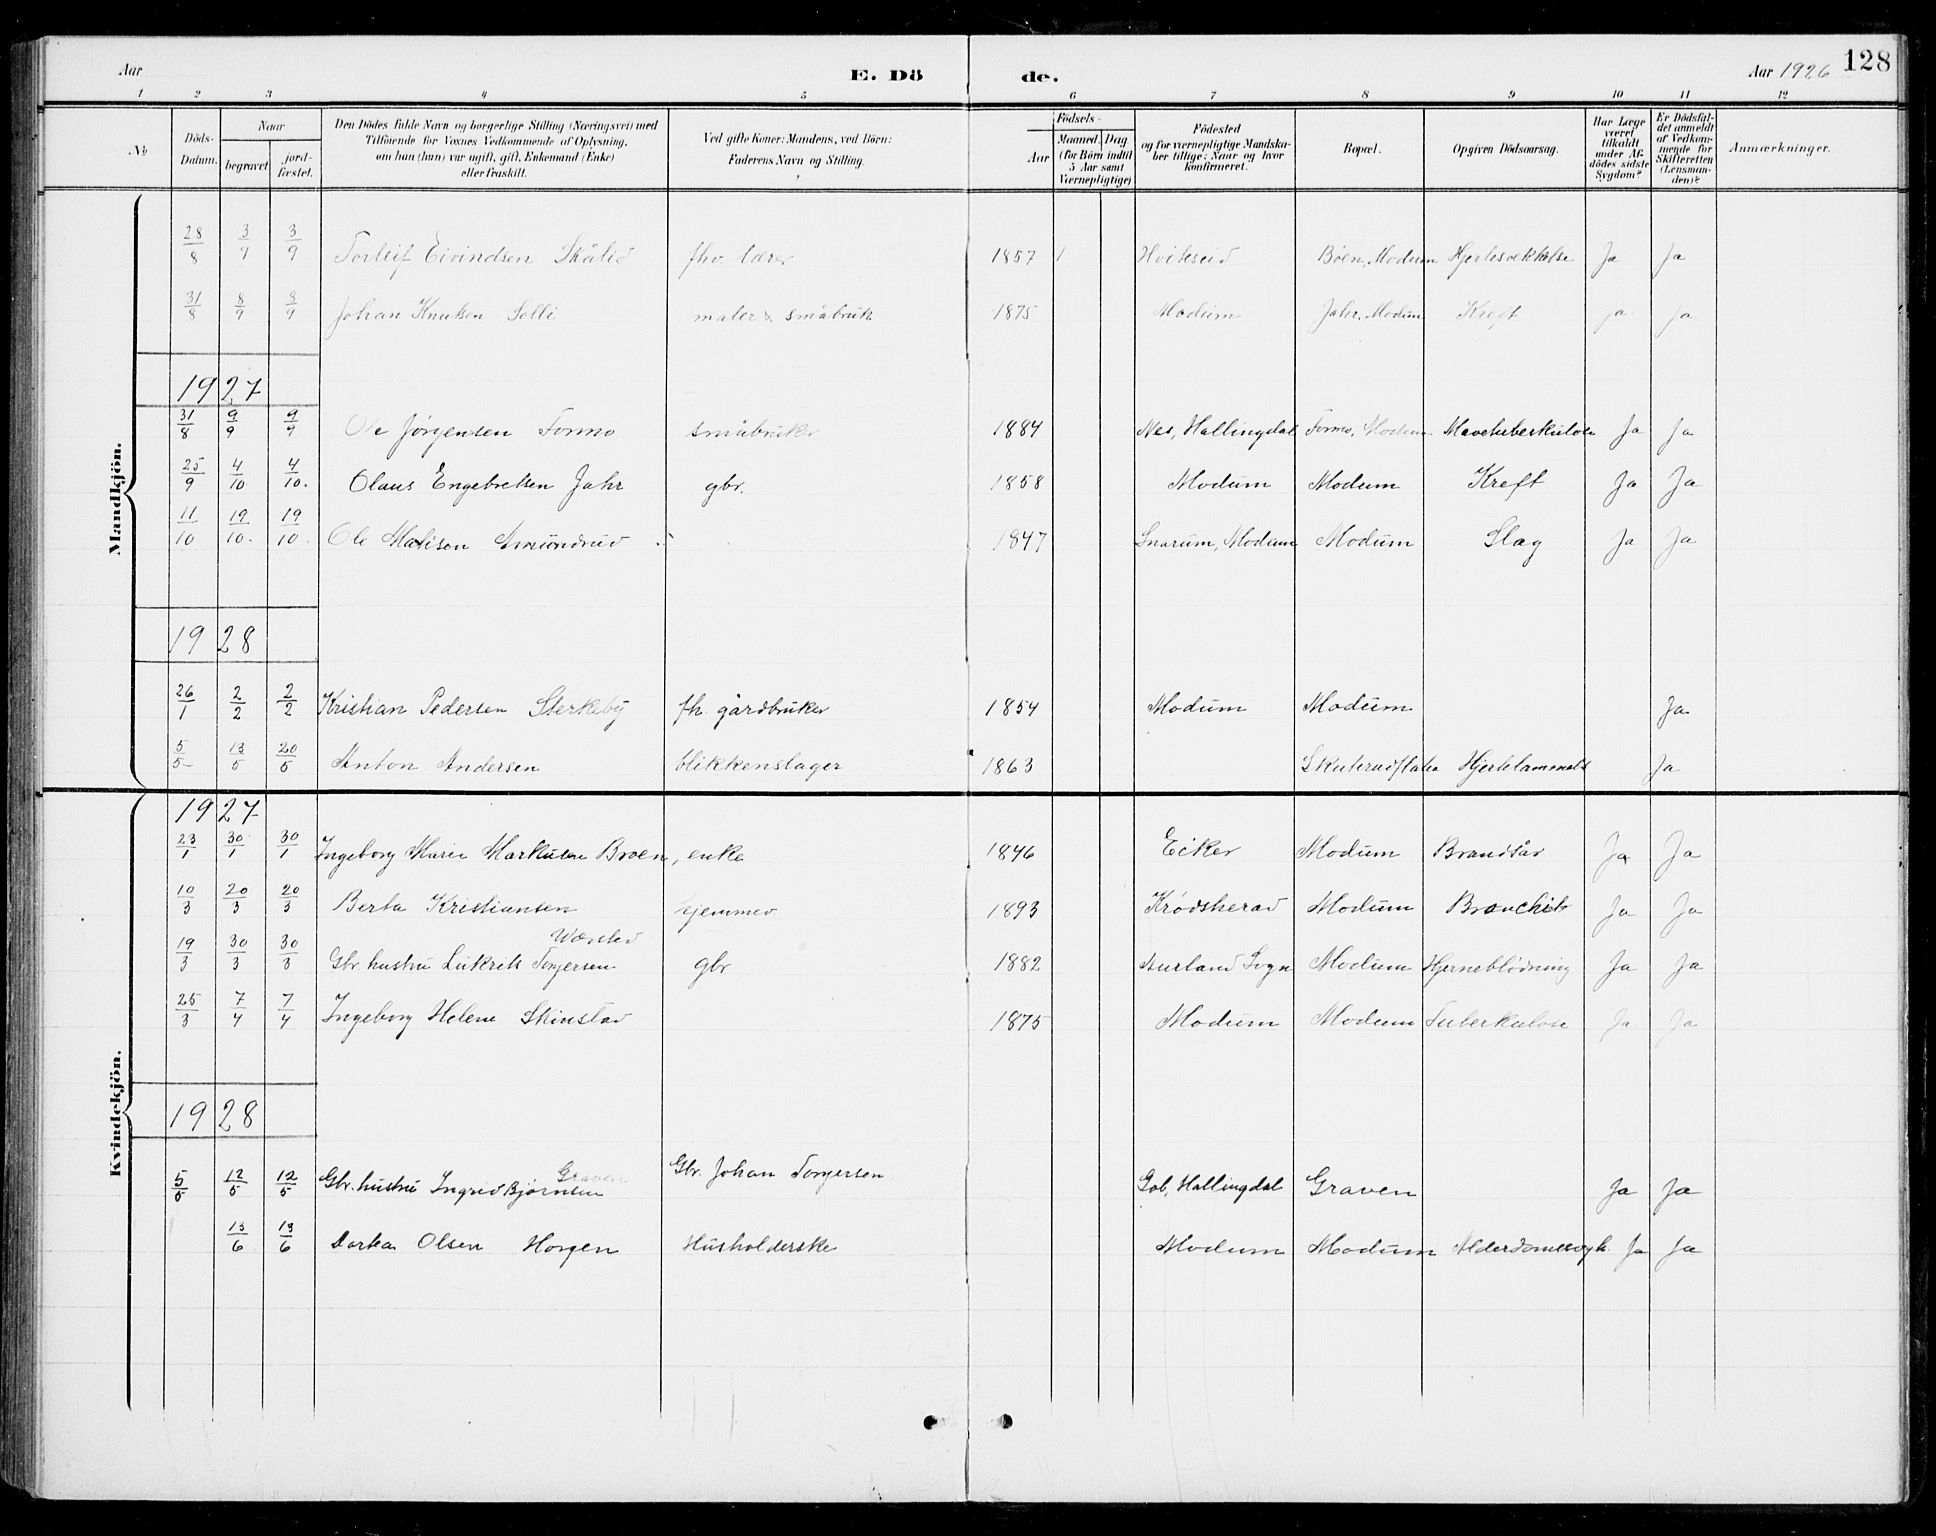 Aar
E. Dö de.
Aar 1926 128
1 2 3 4 5 6 7 8 9 10 11 12
No
Döds-Datum.
Naar
begravet
jord-fæstet.
Den Dödes fulde Navn og borgerlige Stilling (Næringsvei) med
Tilföiende for Voxnes Vedkommende af Oplysning,
om han (hun) var ugift, gift, Enkemand (Enke)
eller fraskilt.
Ved gifte Koner: Mandens, ved Börn:
Faderens Navn og Stilling.
Födsels-
Aar
Maaned. Dag.
(for Börn indtil
5 Aar samt
Værnepligtige)
Födested
og for værnepligtige Mandska-
ber tillige: Naar og hvor
konfirmeret.
Bopæl.
Opgiven Dödsaarsag.
Har Læge
været
tilkaldt
under Af-
dödes sidste
Sygdom?
Er Dödsfal-
det anmeldt
af Vedkom-
mende for
Skifteretten
(Lensman-
den)?
Anmærkninger.
Mandkjön.
28/8 3/9 3/9 Torleif Eivindsen Skålid fhv. lærer 1857 Hviteseid Böen, Modum Hjertesvekkelse Ja Ja
31/8 8/9 8/9 Johan Knutsen Solli maler & småbruk 1875 Modum Jahr, Modum Kreft Ja Ja
1927
31/8 9/9 9/9 Ole Jørgensen Formo småbruker 1884 Nes, Hallingdal Formo, Modum Mavetuberkulose Ja Ja
25/9 4/10 4/10. Olaus Engebretsen Jahr gbr. 1858 Modum Modum Kreft Ja Ja
11/10 19/10. 19/10. Ole Amundrud 1847 Snarum, Modum Modum Slag Ja Ja
1928
26/1 2/2 2/2 Kristian Pedersen Sterkeby fh. gårdbruker 1854 Modum Modum Ja
5/5 13/5 20/5 Anton Andersen blikkenslager 1863 Skuterudflaten Hjertelammels Ja
Kvindekjön.
1927
23/1 30/1 30/1 Ingeborg Marie Markusen Broen, enke 1846 Eiker Modum Brandsår Ja Ja
10/3 20/3 20/3 Berta Kristiansen hjemmev 1893 Krødsherad Modum Bronchit Ja Ja
19/3 30/3 30/3 Gbr. hustru Torgersen gbr 1882 Aurland Sogn Modum Hjerneblödning Ja Ja
25/3 7/4 7/4 Ingeborg Helene Skinstad 1875 Modum Modum Tuberkulose Ja Ja
1928
5/5 12/5 12/5 Gbr. hustru Ingrid Bjørnsen Graven Gbr. Johan Torgersen Gol, Hallingdal Graven Ja Ja
13/6 13/6 Dortea Olsen Horgen Husholderske Modum Modum Alderdomssvgh. Ja Ja